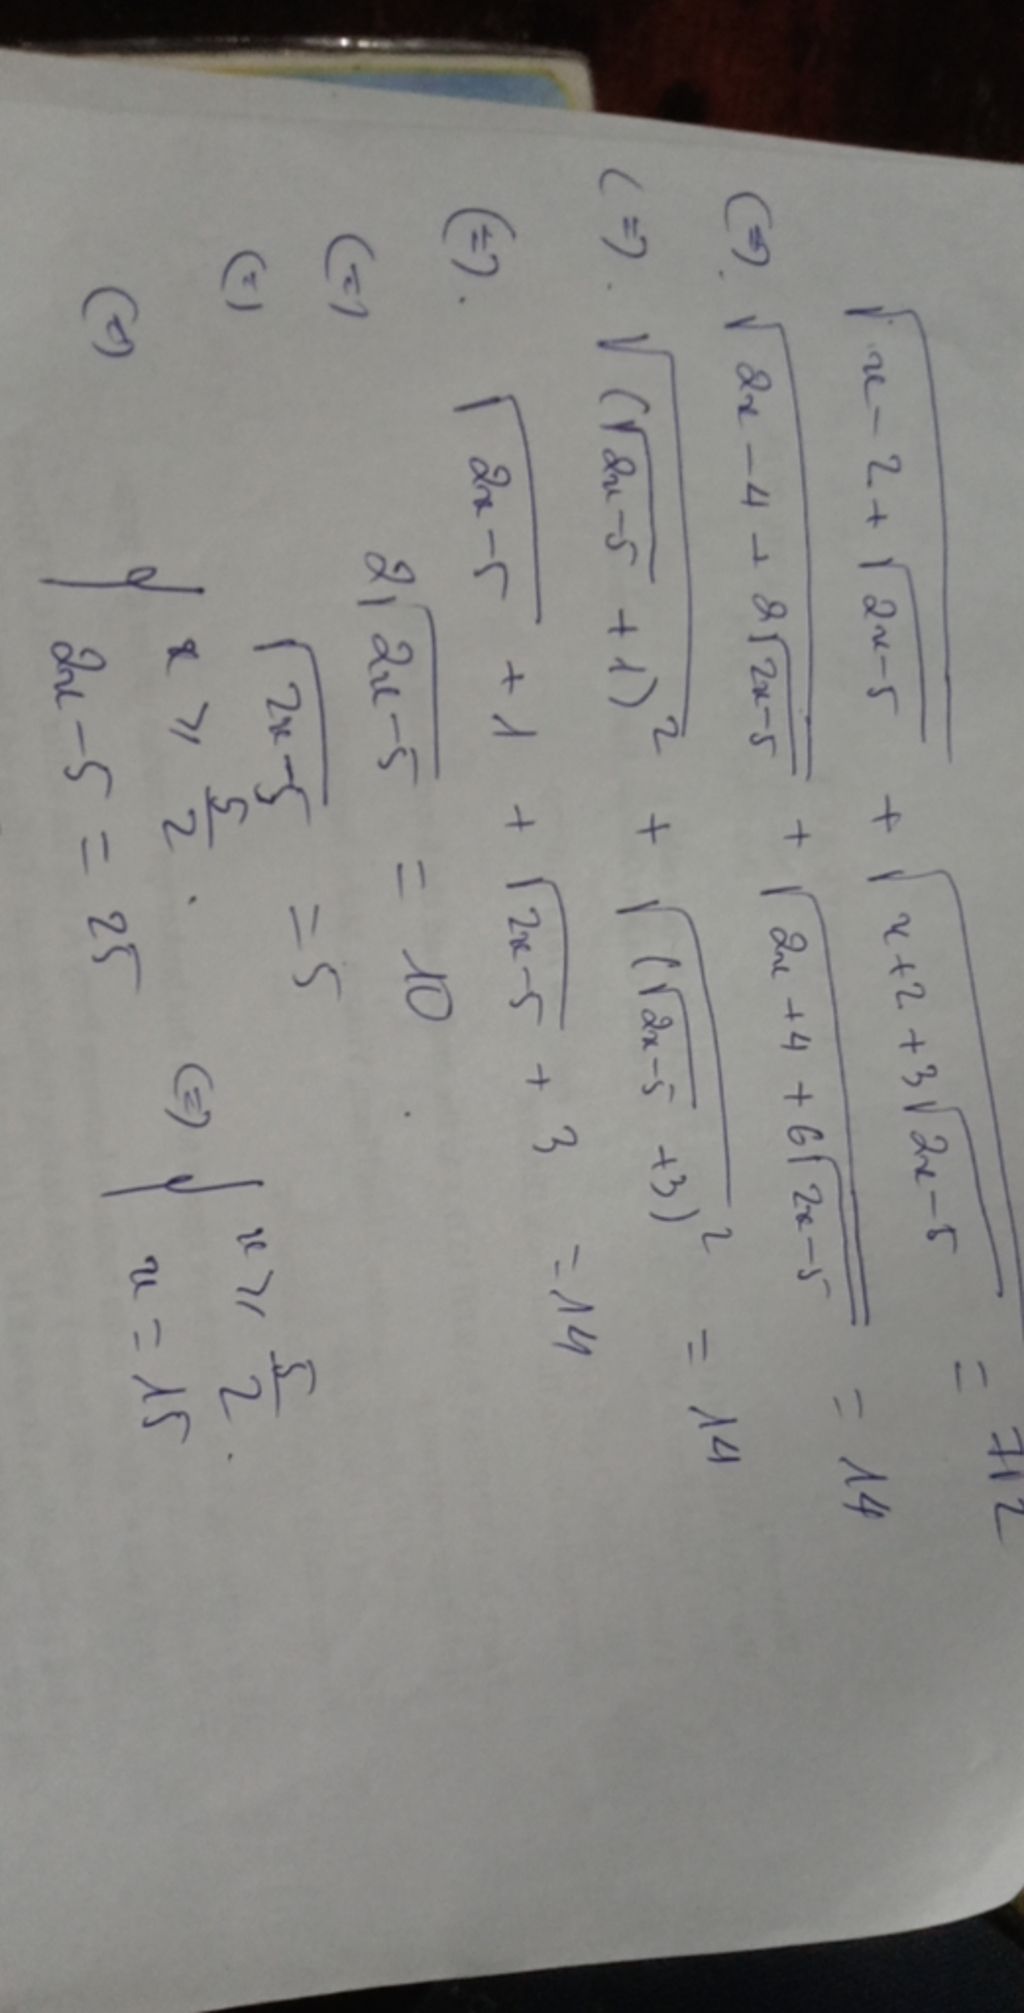 √(x-2+√(2x-5)) + √(x+2+3√(2x-5)) = 7√2
(=). √(2x-4+2√(2x-5)) + √(2x+4+6√(2x-5)) = 14
(=). √((√(2x-5)+1)²) + √((√(2x-5)+3)²) = 14
(=). √(2x-5) + 1 + √(2x-5) + 3 = 14
(=) 2√(2x-5) = 10.
(=) √(2x-5) = 5
(=) { x ≥ 5/2. (=) { x ≥ 5/2.
2x-5 = 25 x = 15